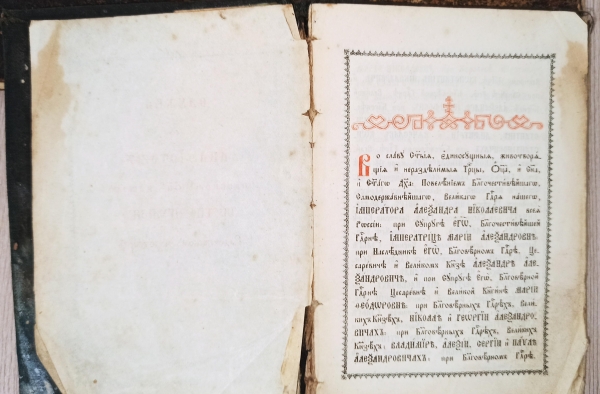 Во славу Ст҃ыѧ, є҆диносущныѧ, животворѧ-
щїѧ и нераздѣлимыѧ Трⷪ҇цы, Ѻ҆ц҃а, и Сн҃а,
и Ст҃агѡ Дх҃а: Повелѣнїемъ Бл҃гочестивѣйшагѡ,
Самодержавнѣйшагѡ, Великагѡ Гдⷭ҇рѧ нашегѡ,
ІМПЕРАТОРА АЛЕѮАНДРА НІКОЛАЕВИЧА всеѧ
Рѡссїи: при Супругѣ ЄГѠ, Бл҃гочестивѣйшей
Гдⷭ҇рнѣ, ІМПЕРАТРИЦѢ МАРІИ АЛЕѮАНДРОВНѢ:
при Наслѣдникѣ ЄГѠ, Бл҃говѣрномъ Гдⷭ҇рѣ, Це-
саревичѣ и Великомъ Кнѧзѣ АЛЕѮАНДРѢ АЛЕ-
ѮАНДРОВИЧѢ, и при Супругѣ Єгѡ, Бл҃говѣрной
Гдⷭ҇рнѣ Цесаревнѣ и Великой Кнѧгинѣ МАРІИ
ѲЕОДѠРОВНѢ: при Бл҃говѣрныхъ Гдⷭ҇рѣхъ, Вели-
кихъ Кнѧзѣхъ, НІКОЛАѢ и ГЕѠРГІИ АЛЕѮАНДРО-
ВИЧАХЪ: при Бл҃говѣрныхъ Гдⷭ҇рѣхъ, Великихъ
Кнѧзѣхъ: ВЛАДИМІРѢ, АЛЕѮІИ, СЕРГІИ и ПАѴЛѢ
АЛЕѮАНДРОВИЧАХЪ: при Бл҃говѣрномъ Гдⷭ҇рѣ,